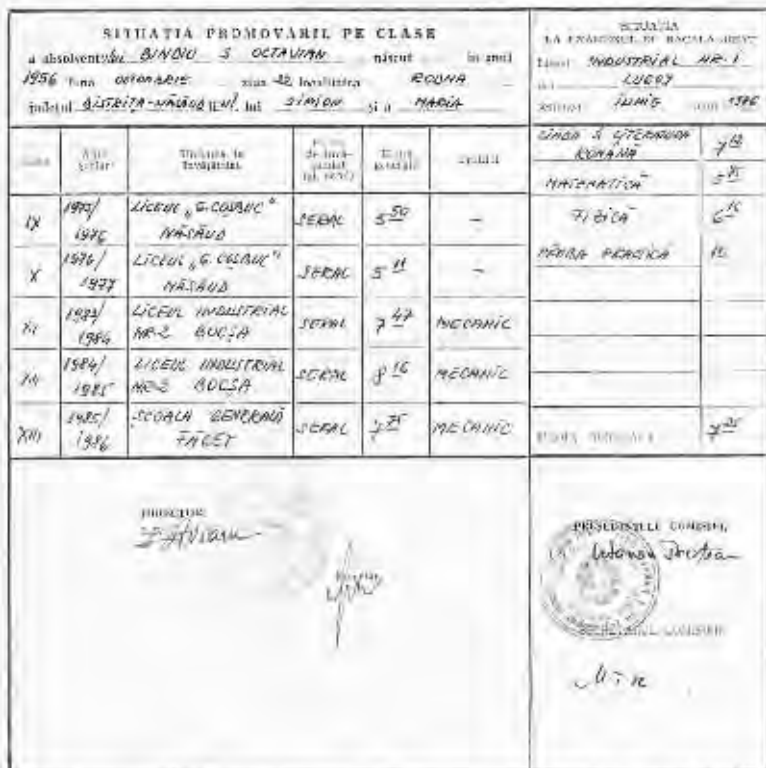 SITUAȚIA PROMOVĂRII PE CLASE
a absolventului BINDIU S OCTAVIAN născut în anul
1956 luna OCTOMBRIE ziua 22 localitatea RODNA
județul BISTRIȚA-NĂSĂUD lui SIMION și a MARIA
IX 1975/1976 LICEUL „G. COȘBUC" NĂSĂUD SERAL 5 50 -
X 1976/1977 LICEUL „G. COȘBUC" NĂSĂUD SERAL 5 11 -
XI 1983/1984 LICEUL INDUSTRIAL NR-2 BOCȘA SERAL 7 47 MECANIC
XII 1984/1985 LICEUL INDUSTRIAL NR-2 BOCȘA SERAL 8 16 MECANIC
XIII 1985/1986 ȘCOALA GENERALĂ FĂGET SERAL 7 75 MECANIC
DIRECTOR
SITUAȚIA
LA EXAMENUL DE BACALAUREAT
INDUSTRIAL NR-1
LUGOJ
IUNIE 1986
LIMBA ȘI LITERATURA ROMÂNĂ 7
MATEMATICĂ 5
FIZICĂ 6
PROBA PRACTICĂ 10
MEDIA GENERALĂ 7
PREȘEDINTELE COMISIEI,
SECRETARUL COMISIEI